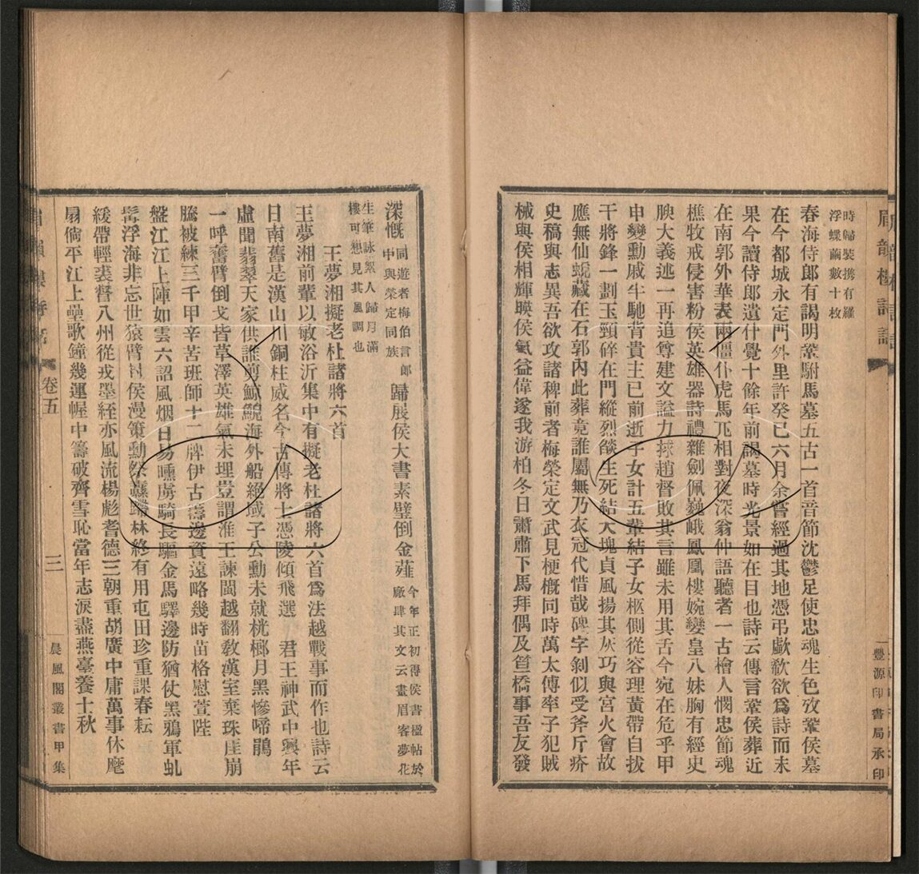 時歸裝携有羅
浮蝶繭數十枚
春海侍郎有謁明鞏駙馬墓五古一首音節沈鬱足使忠魂生色攷鞏侯墓
在今都城永定門外里許癸巳六月余嘗經過其地憑弔歔欷欲爲詩而未
果今讀侍郎遺什覺十餘年前謁墓時光景如在目也詩云傳言鞏侯葬近
在南郭外華表兩僵仆虎馬兀相對夜深翁仲語聽者一古檜人憫忠節魂
樵牧戒侵害粉侯英雄器詩禮雜劍佩巍峨鳳凰樓婉孌皇八妹胸有經史
腴大義述一再追尊建文謚力捄趙督敗其言雖未用其舌今宛在危乎甲
申變勳戚牛馳背貴主已前逝子女計五輩結子女柩側從容理黃帶自拔
干將鋒一劃玉頸碎在門縱烈燄生死結大塊貞風揚其灰巧與宮火會故
應無仙蛻藏在石郭內此葬竟誰屬無乃衣冠代惜哉碑字剜似受斧斤疥
史稿與志異吾欲攻諸稗前者梅榮定文武見梗概同時萬太傅率子犯賊
械與侯相輝暎侯氣益偉遂我游柏冬日肅肅下馬拜偶及笪橋事吾友發
眉韻樓詩話
豐源印書局承印
深慨
同遊者梅伯言郎
中與榮定同族
歸展侯大書素壁倒金薤
今年正初得侯書楹帖於
廠肆其文云畫眉客夢花
生筆詠絮人歸月滿
樓可想見其風調也
王夢湘擬老杜諸將六首
王夢湘前輩以敏浴沂集中有擬老杜諸將六首爲法越戰事而作也詩云
日南舊是漢山川銅柱威名今古傳將士憑陵傾飛選　君王神武中興年
虛聞翡翠天家供誰剪鯨鯢海外船絕域子公勳未就桄榔月黑慘啼鵑
一呼奮臂倒戈皆草澤英雄氣未埋豈謂淮王諫閩越翻敎漢室棄珠厓崩
騰被練三千甲辛苦班師十二牌伊古籌邊資遠略幾時苗格慰萱陛
盤江江上陣如雲六詔風烟日易曛虜騎長驅金馬驛邊防猶仗黑鴉軍虬
髯浮海非忘世猿臂封侯漫策勳祭纛叢林終有用屯田珍重課春耘
緩帶輕裘督八州從戎墨絰亦風流楊彪耆德三朝重胡廣中庸萬事休麾
扇倘平江上壘歌鐘幾運幄中籌破齊雪恥當年志淚盡燕臺養士秋
眉韻樓詩話
卷五
二
晨風閣叢書甲集